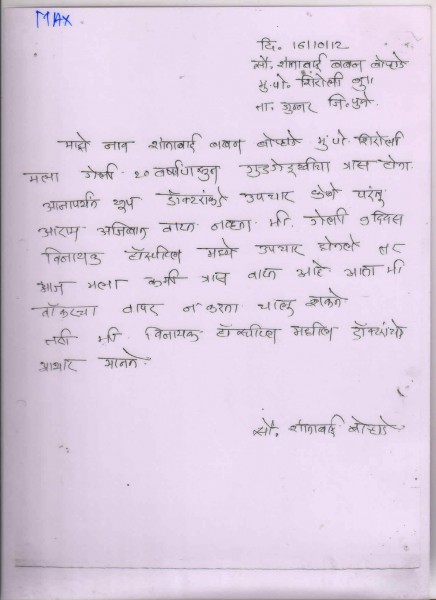 MAX
दि. 16/10/12
सौ. शांताबाई बबन बोऱ्हाडे
मु.पो. शिरोली बु॥
ता. जुन्नर जि. पुणे
माझे नाव शांताबाई बबन बोऱ्हाडे मु.पो. शिरोली
मला गेली २० वर्षापासुन गुडघेदुखीचा त्रास होता.
आतापर्यंत खुप डॉक्टरांकडे उपचार केले परंतु
आराम अजिबात वाटत नव्हता. मी. गेली ७ दिवस
विनायक हॉस्पीटल मध्ये उपचार घेतले तर
आज मला कमी त्रास वाटत आहे. आता मी
वॉकरचा वापर न करता चालु शकते
तरी मी. विनायक हॉस्पीटल मधील डॉक्टरांचे
आभार मानते.
सौ. शांताबाई बोऱ्हाडे